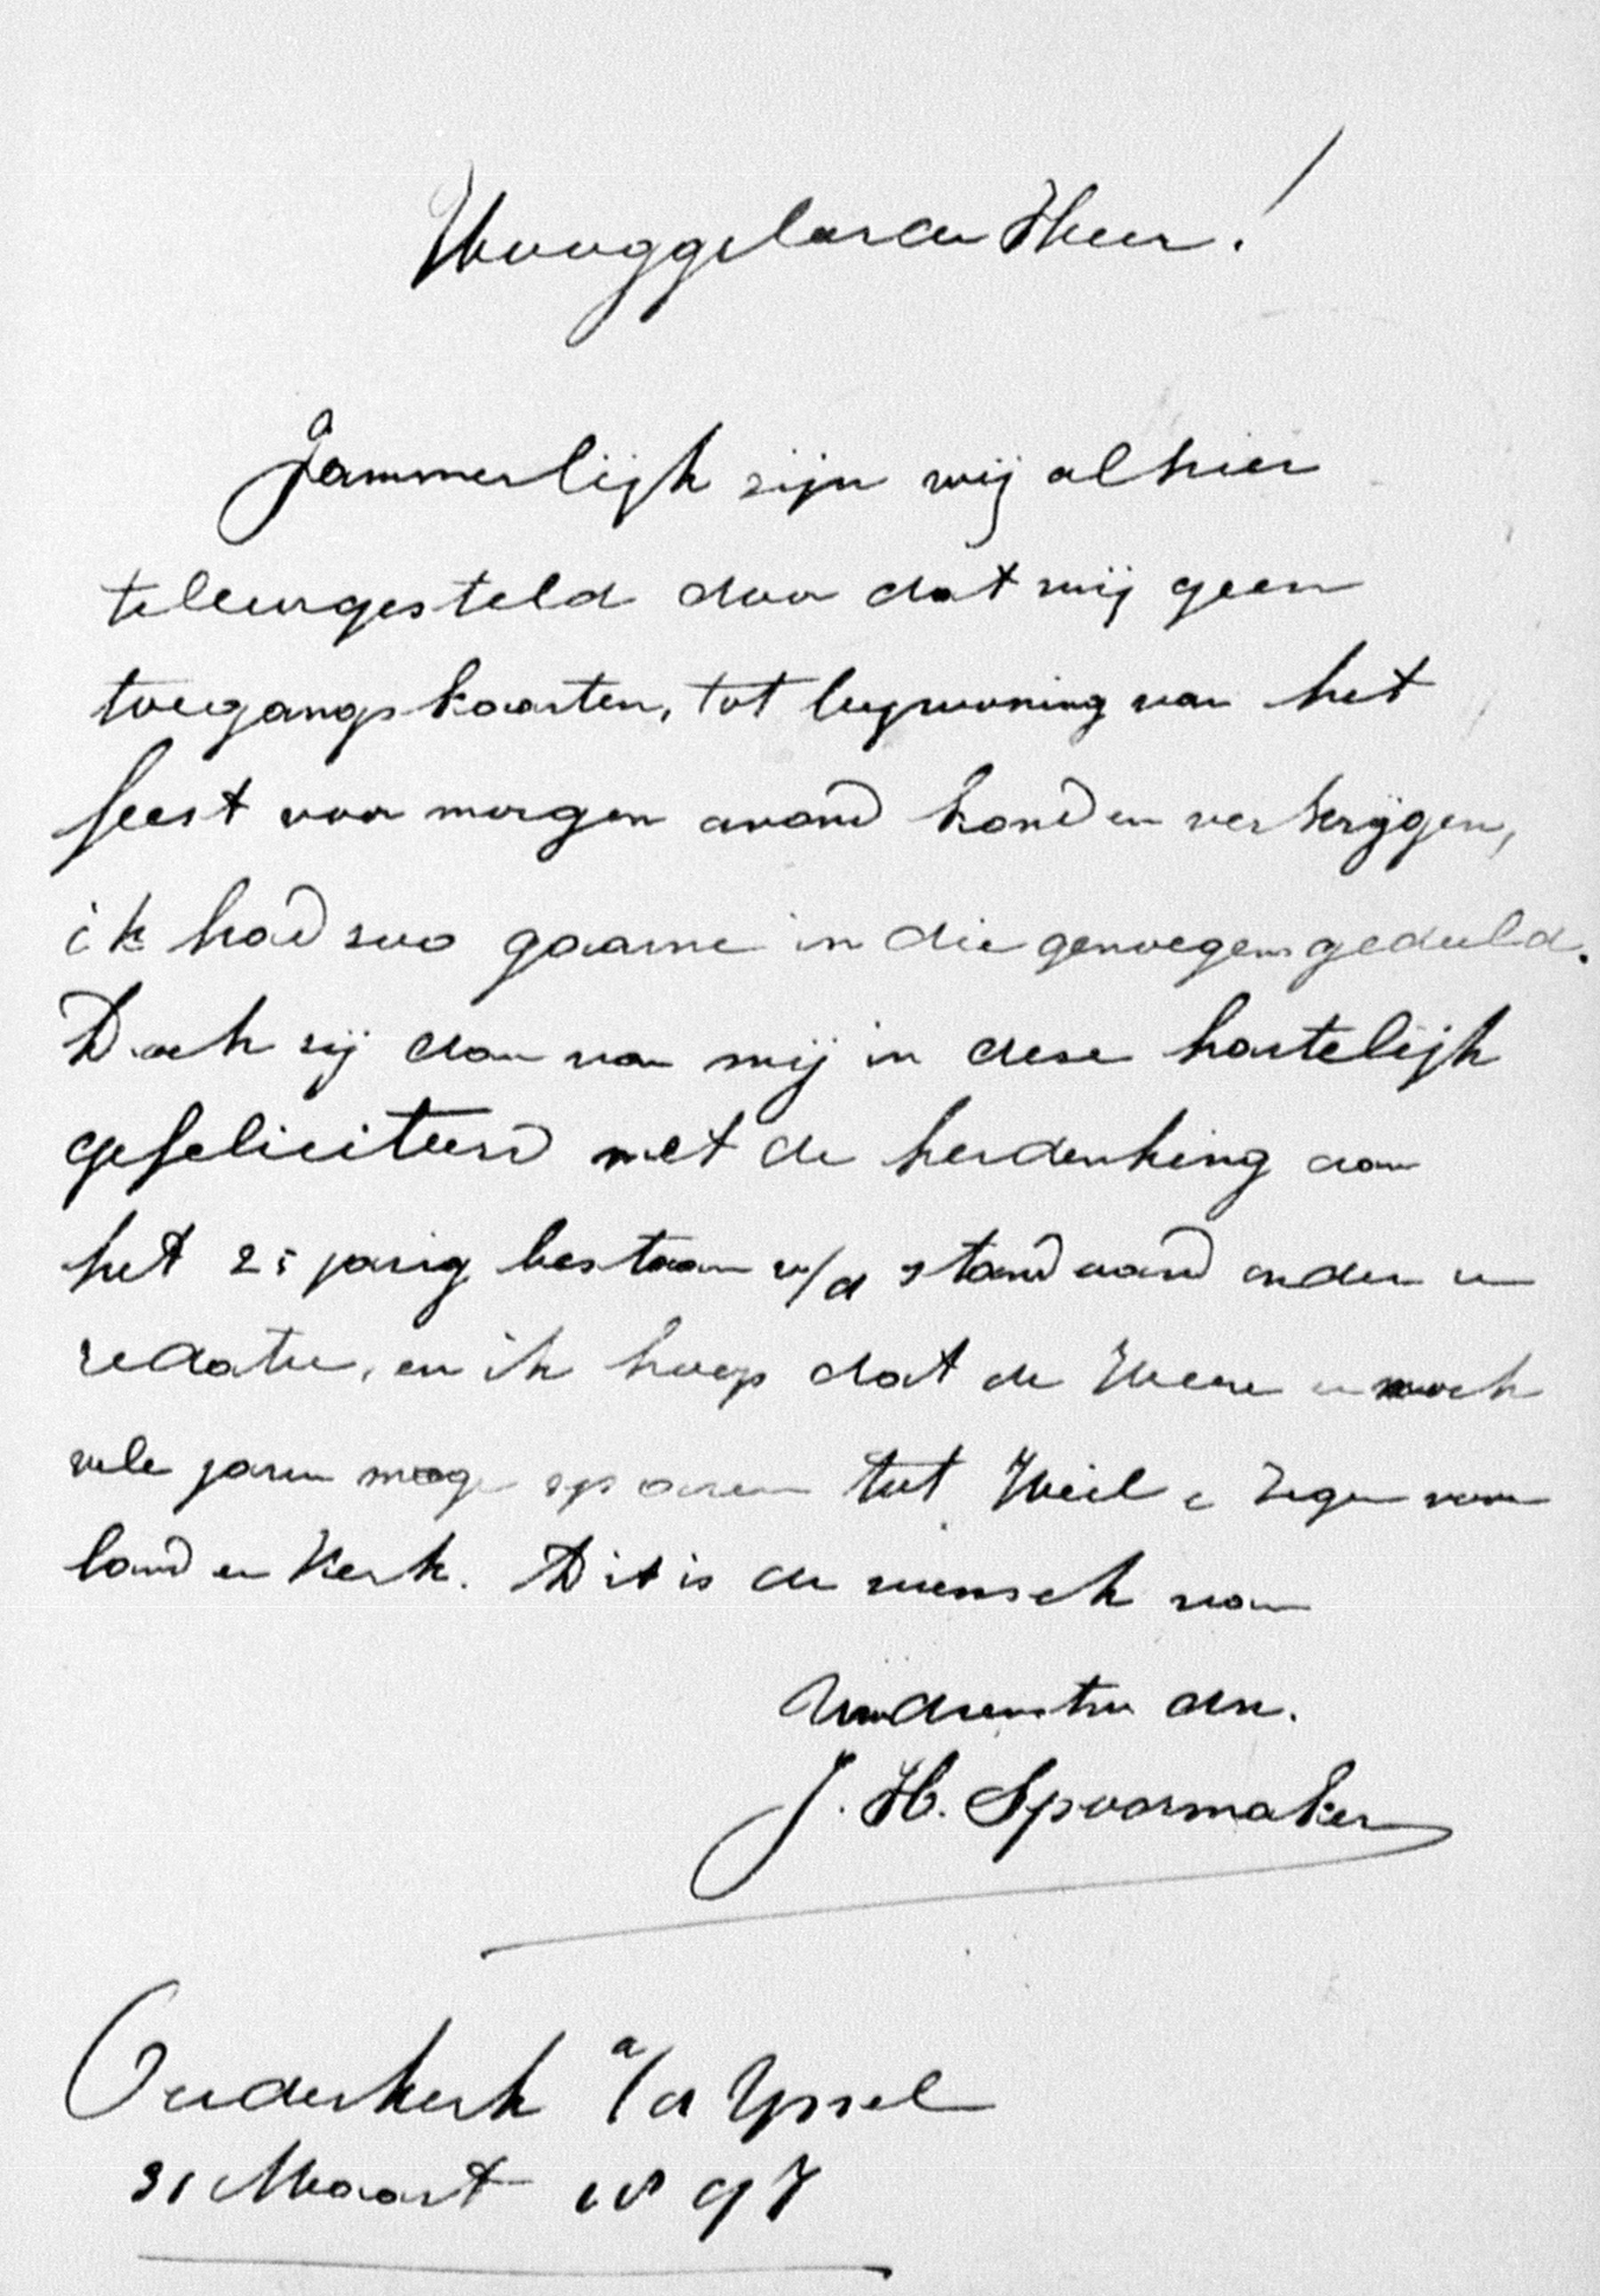 Hooggeleerden Heer!
Jammerlijk zijn wij alhier
teleurgesteld door dat wij geen
toegangskaarten, tot bijwoning van het
feest voor morgen avond konden verkrijgen,
ik had zoo gaarne in die genoegens gedeeld.
Doch zij dan van mij in deze hartelijk
gefeliciteerd met de herdenking aan
het 25 jarig bestaan v/d standaard onder u
redactie, en ik hoop dat de Heere u noch
vele jaren moge sparen tot Heil & Zegen voor
land en Kerk. Dit is de wensch van
Uwdienstw dnr.
J. H. Spoormaker
Ouderkerk a/d Yssel
31 Maart 1897